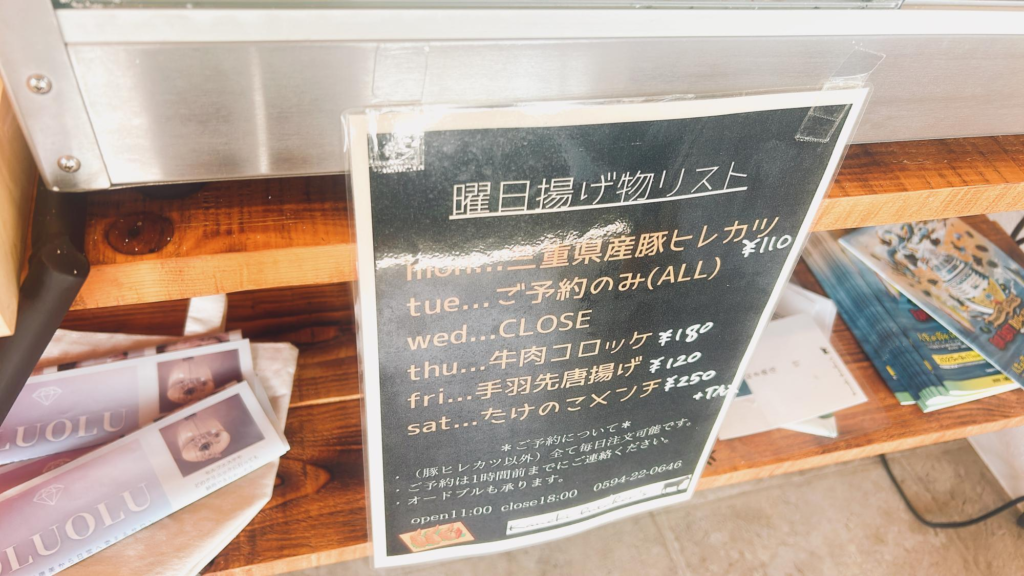 曜日揚げ物リスト
mon...三重県産豚ヒレカツ
¥110
tue...ご予約のみ(ALL)
wed...CLOSE
thu...牛肉コロッケ ¥180
fri...手羽先唐揚げ ¥120
sat...たけのこメンチ ¥250
*ご予約について*
・(豚ヒレカツ以外)全て毎日注文可能です。
・ご予約は1時間前までにご連絡ください。
・オードブルも承ります。
open11:00 close18:00 0594-22-0646
LUOLU
OLUOLU